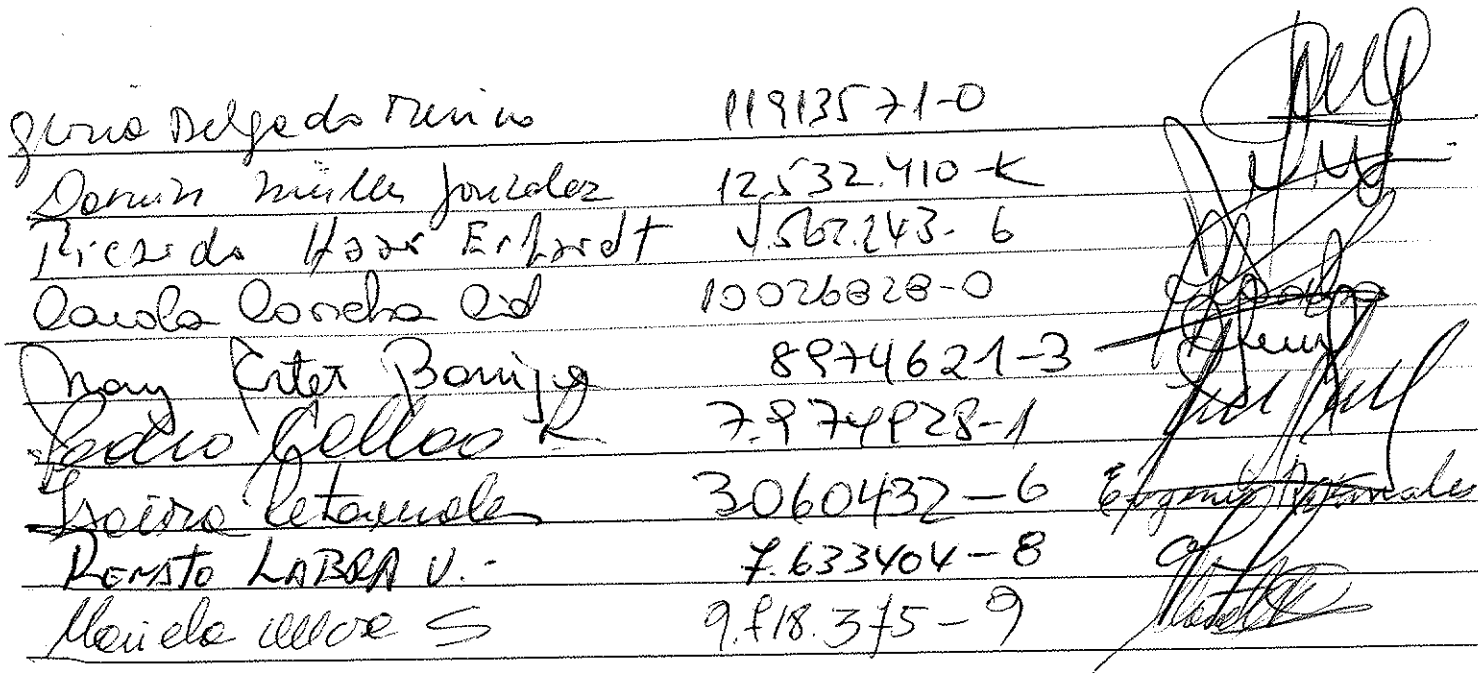 Gloria Delgado Merino 11913571-0
Darwin Müller Gonzalez 12.532.410-K
Ricardo Haas Erhardt .562.243-6
Carola Concha Cid 10026828-0
Mary Ester Barriga 8974621-3
Pedro Collao R. 7.974928-1
Retamales 3060432-6 Retamales
RENATO LABRA V.- 7.633404-8
Mariela Mora S 9.718.375-9